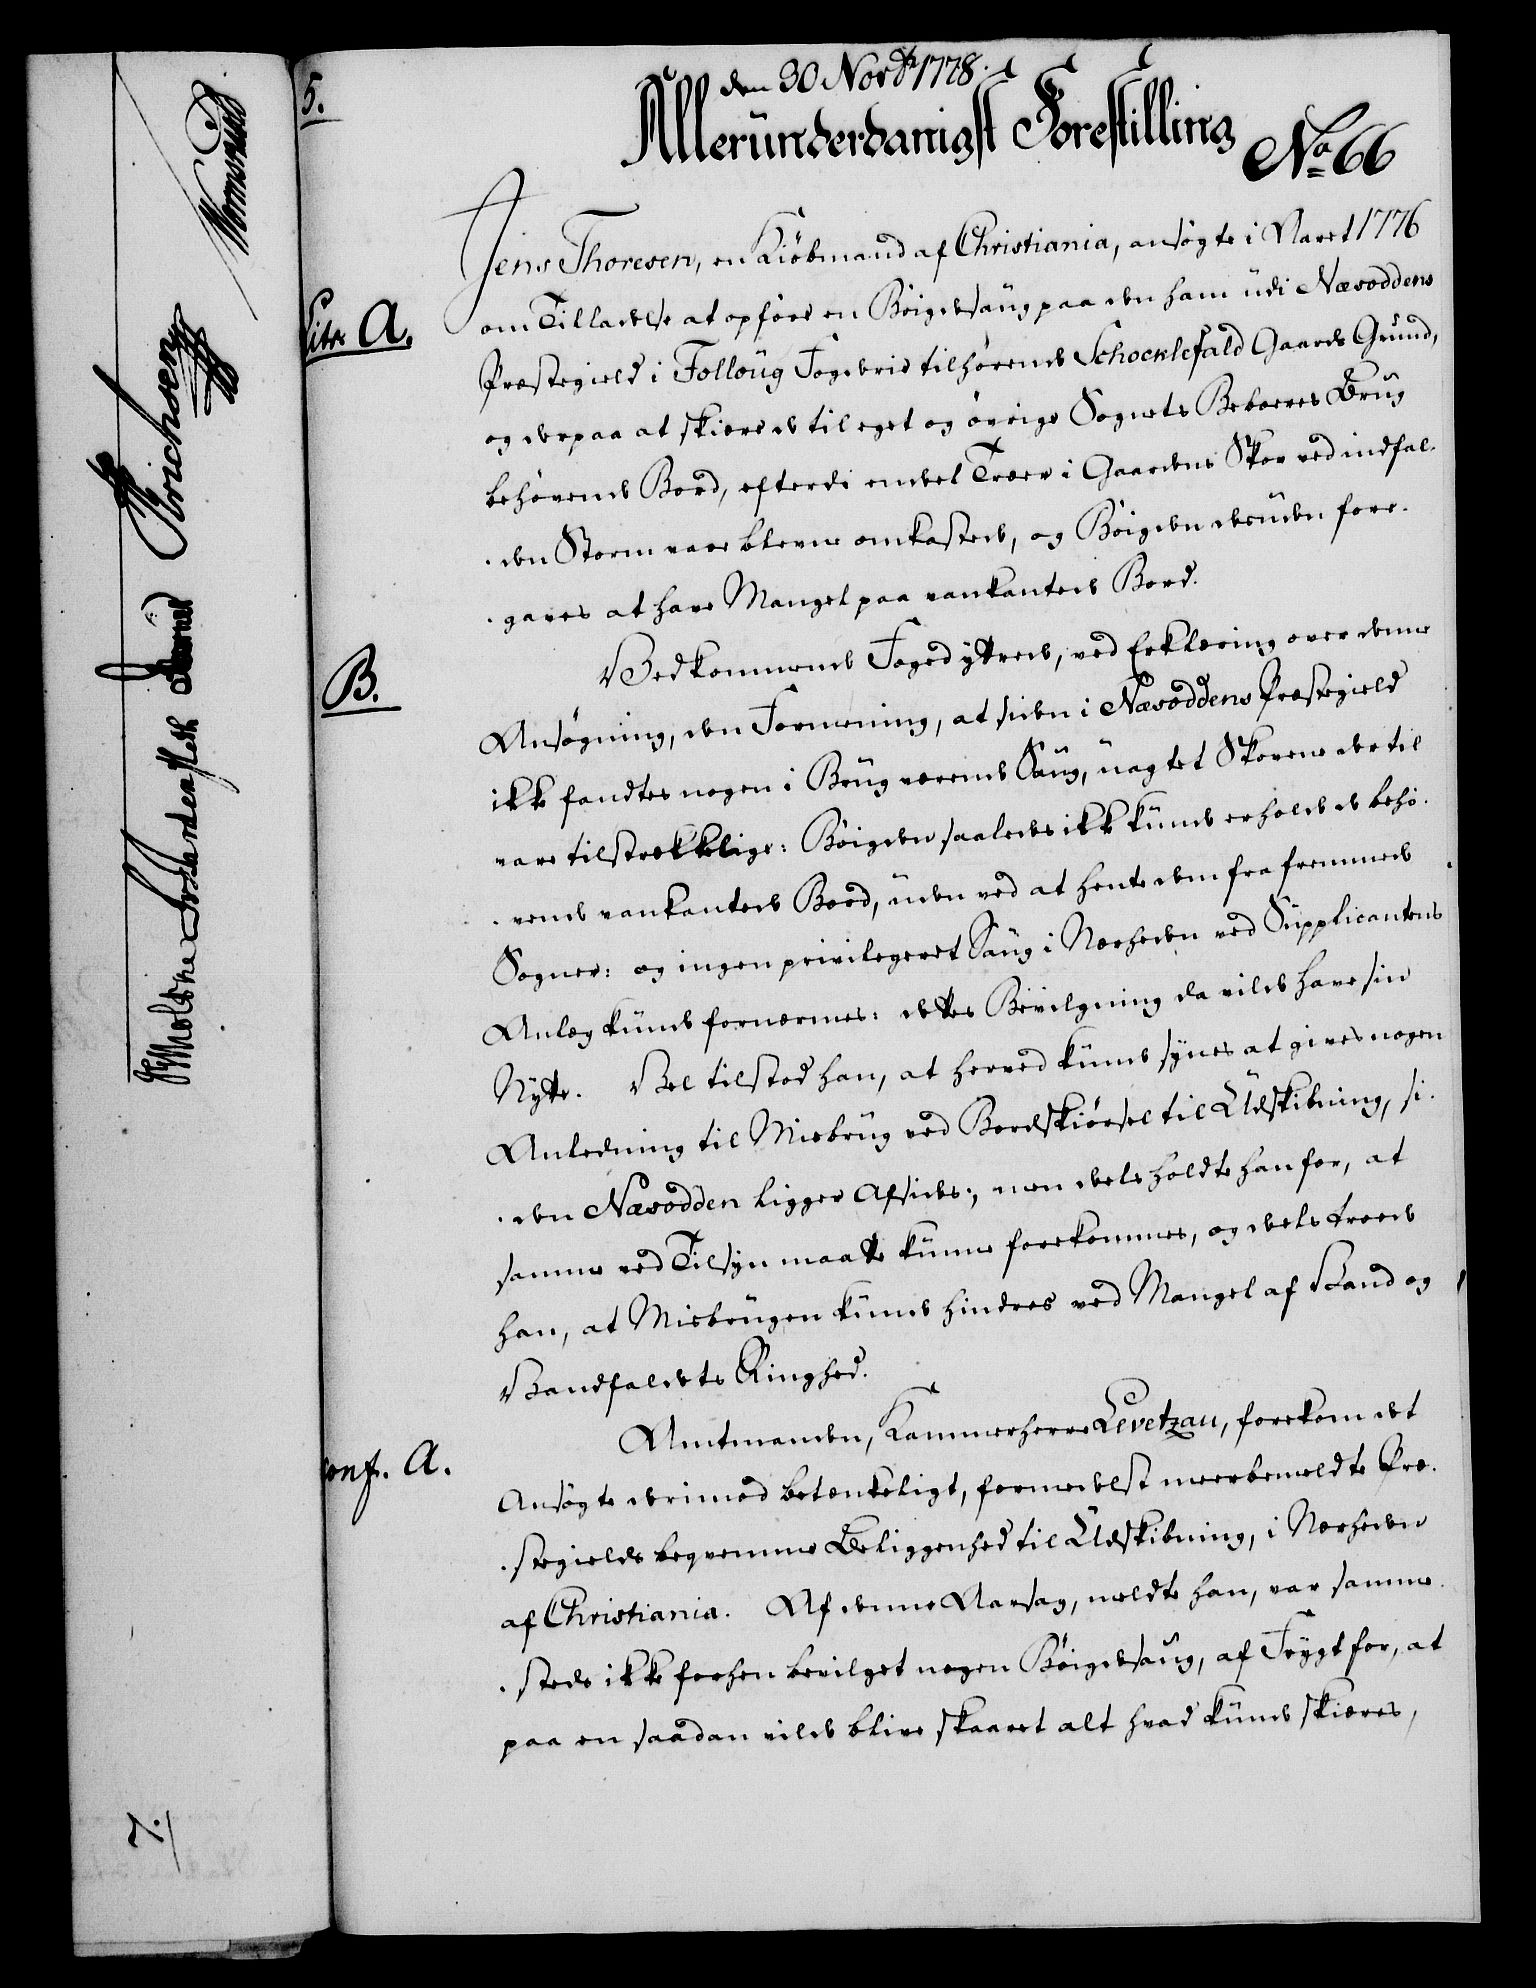 5.
den 30 Nov.br 1778.
Alleründerdanigst Forestilling
No. 66
Jens Thoresen, en Kiöbmand af Christiania, ansøgte i Aaret 1776
Litr. A.
om Tilladelse at opføre en Böigdesaüg paa den ham üdi Næsoddens
Præstegield i Folloüg Fogderie tilhørende Schocklefald Gaards Grund,
og derpaa at skiære de til eget og øvrige Sognets Beboeres Brüg
behøvende Bord, efterdi endeel Træer i Gaardens Skov ved indfal-
-den Storm vare blevne omkastede, og Böigden desüden fore-
-gaves at have Mangel paa vankantede Bord.
B.
Vedkommende Foged yttrede, ved Erklæring over denne
Ansøgning, den Formening, at siden i Næsoddens Præstegield
ikke fandtes nogen i Brüg værende Saüg, üagtet Skovene dertil
vare tilstrekkelige: Böigden saaledes ikke künde erholde de behø-
-vende vankantede Bord, üden ved at hente dem fra fremmede
Sogner: og ingen privilegeret Saüg i Nærheden ved Supplicantens
Anlæg künde fornærmes: dettes Bevilgning da vilde have sin
Nytte. Vel tilstod han, at herved künde synes at gives nogen
Anledning til Misbrüg ved Bordskiørsel til Üdskibning, si-
-den Næsodden ligger afsides; men deels holdte han for, at
samme ved Tilsyn maatte künne forekommes, og deels troede
han, at Misbrügen künde hindres ved Mangel af Vand og
Vandfaldets Ringhed.
Amtmanden, Kammerherre Levetzau, forekom det
conf. A.
Ansøgte derimod betænkeligt, formedelst meerbemeldte Præ-
-stegields beqvemme Beliggenhed til Üdskibning, i Nærheden
af Christiania. Af denne Aarsag, meldte han, var samme-
-steds ikke forhen bevilget nogen Böigdesaüg, af Frygt for, at
paa en saadan vilde blive skaaret alt hvad künde skiæres,
Erichsen
Wormskiold
7.